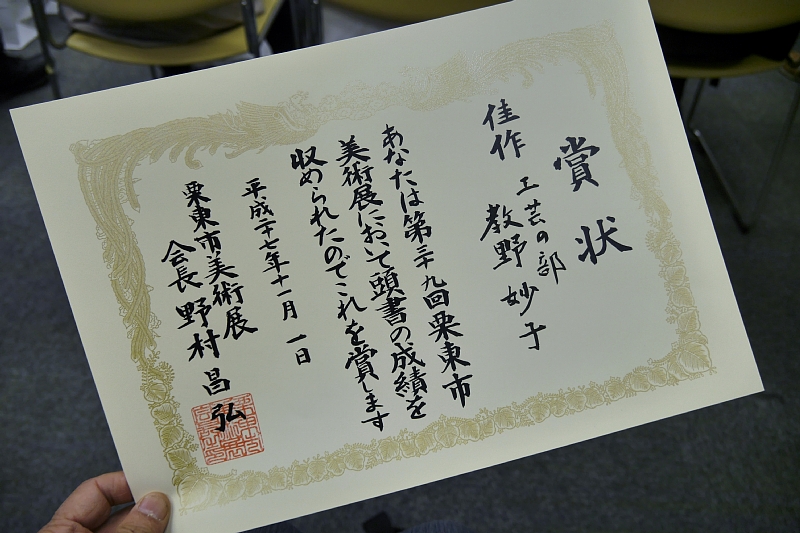 賞状
佳作 工芸の部
教野 妙子
あなたは第二十九回栗東市
美術展において頭書の成績を
収められたのでこれを賞します
平成二十七年十一月一日
栗東市美術展
会長 野村昌弘